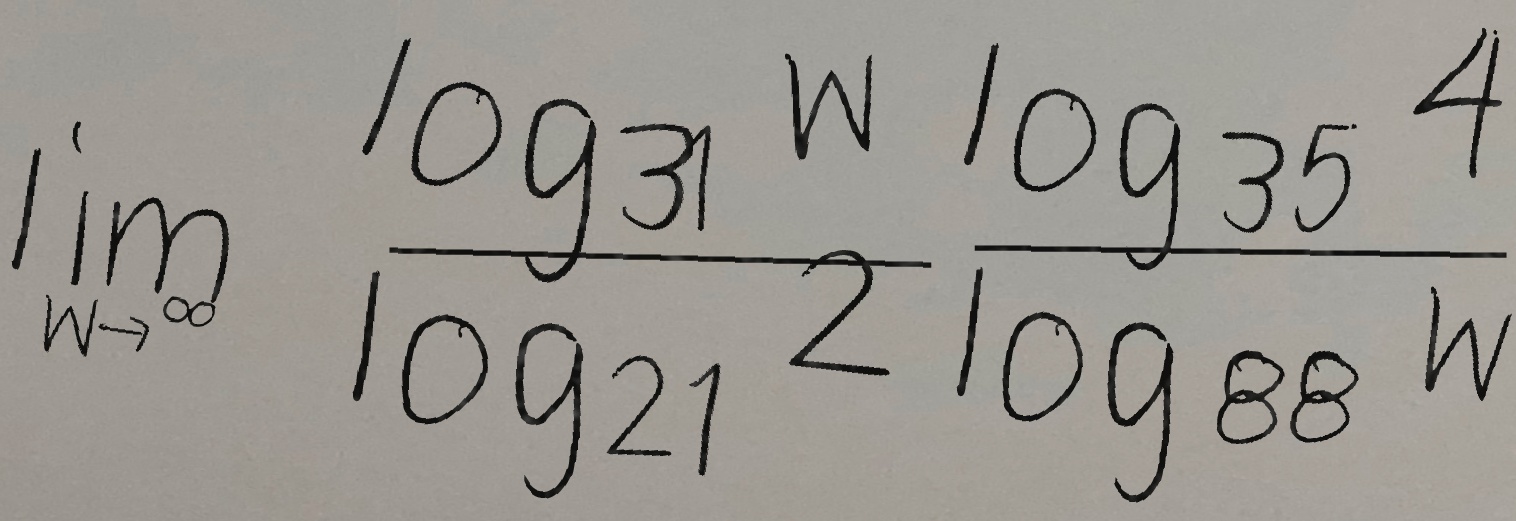 \lim_{w \to \infty} \frac{\log_{31} w}{\log_{21} 2} \frac{\log_{35} 4}{\log_{88} w}